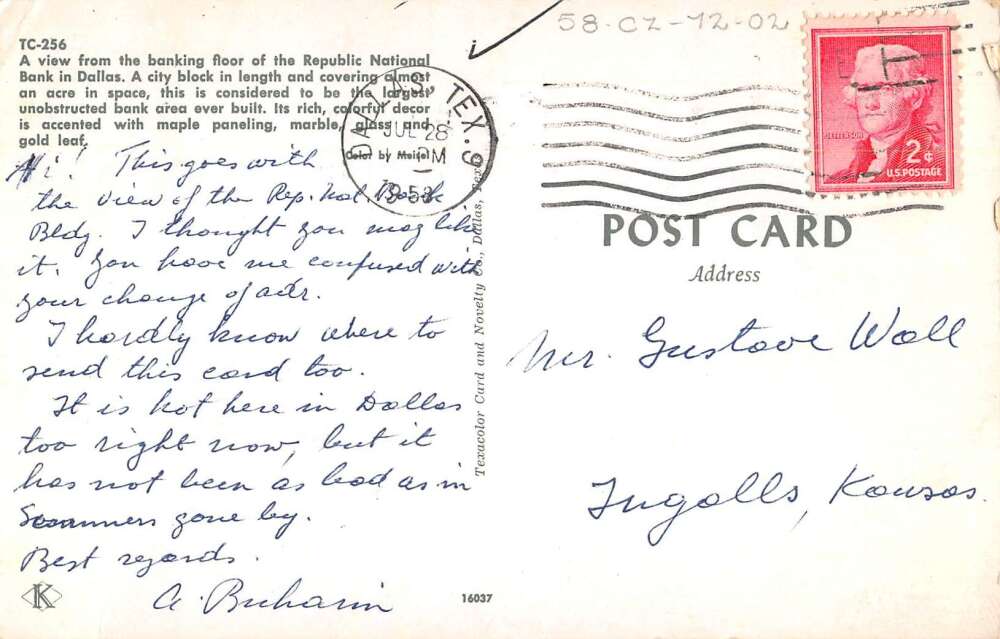 58-CZ-12-02
TC-256
A view from the banking floor of the Republic National
Bank in Dallas. A city block in length and covering almost
an acre in space, this is considered to be the largest
unobstructed bank area ever built. Its rich, colorful decor
is accented with maple paneling, marble, glass and
gold leaf.
Color by Meisel
DALLAS, TEX. 9
JUL 28
PM
1958
JEFFERSON
2¢
U.S. POSTAGE
Hi! This goes with
the view of the Rep. Nal. Bank
Bldg. I thought you may like
it. You have me confused with
your change of adr.
I hardly know where to
send this card too.
It is hot here in Dallas
too right now, but it
has not been as bad as in
Summers gone by.
Best regards.
A. Buharin
K
16037
Texacolor Card and Novelty Co., Dallas, Texas
POST CARD
Address
Mr. Gustave Wall
Ingalls, Kansas.